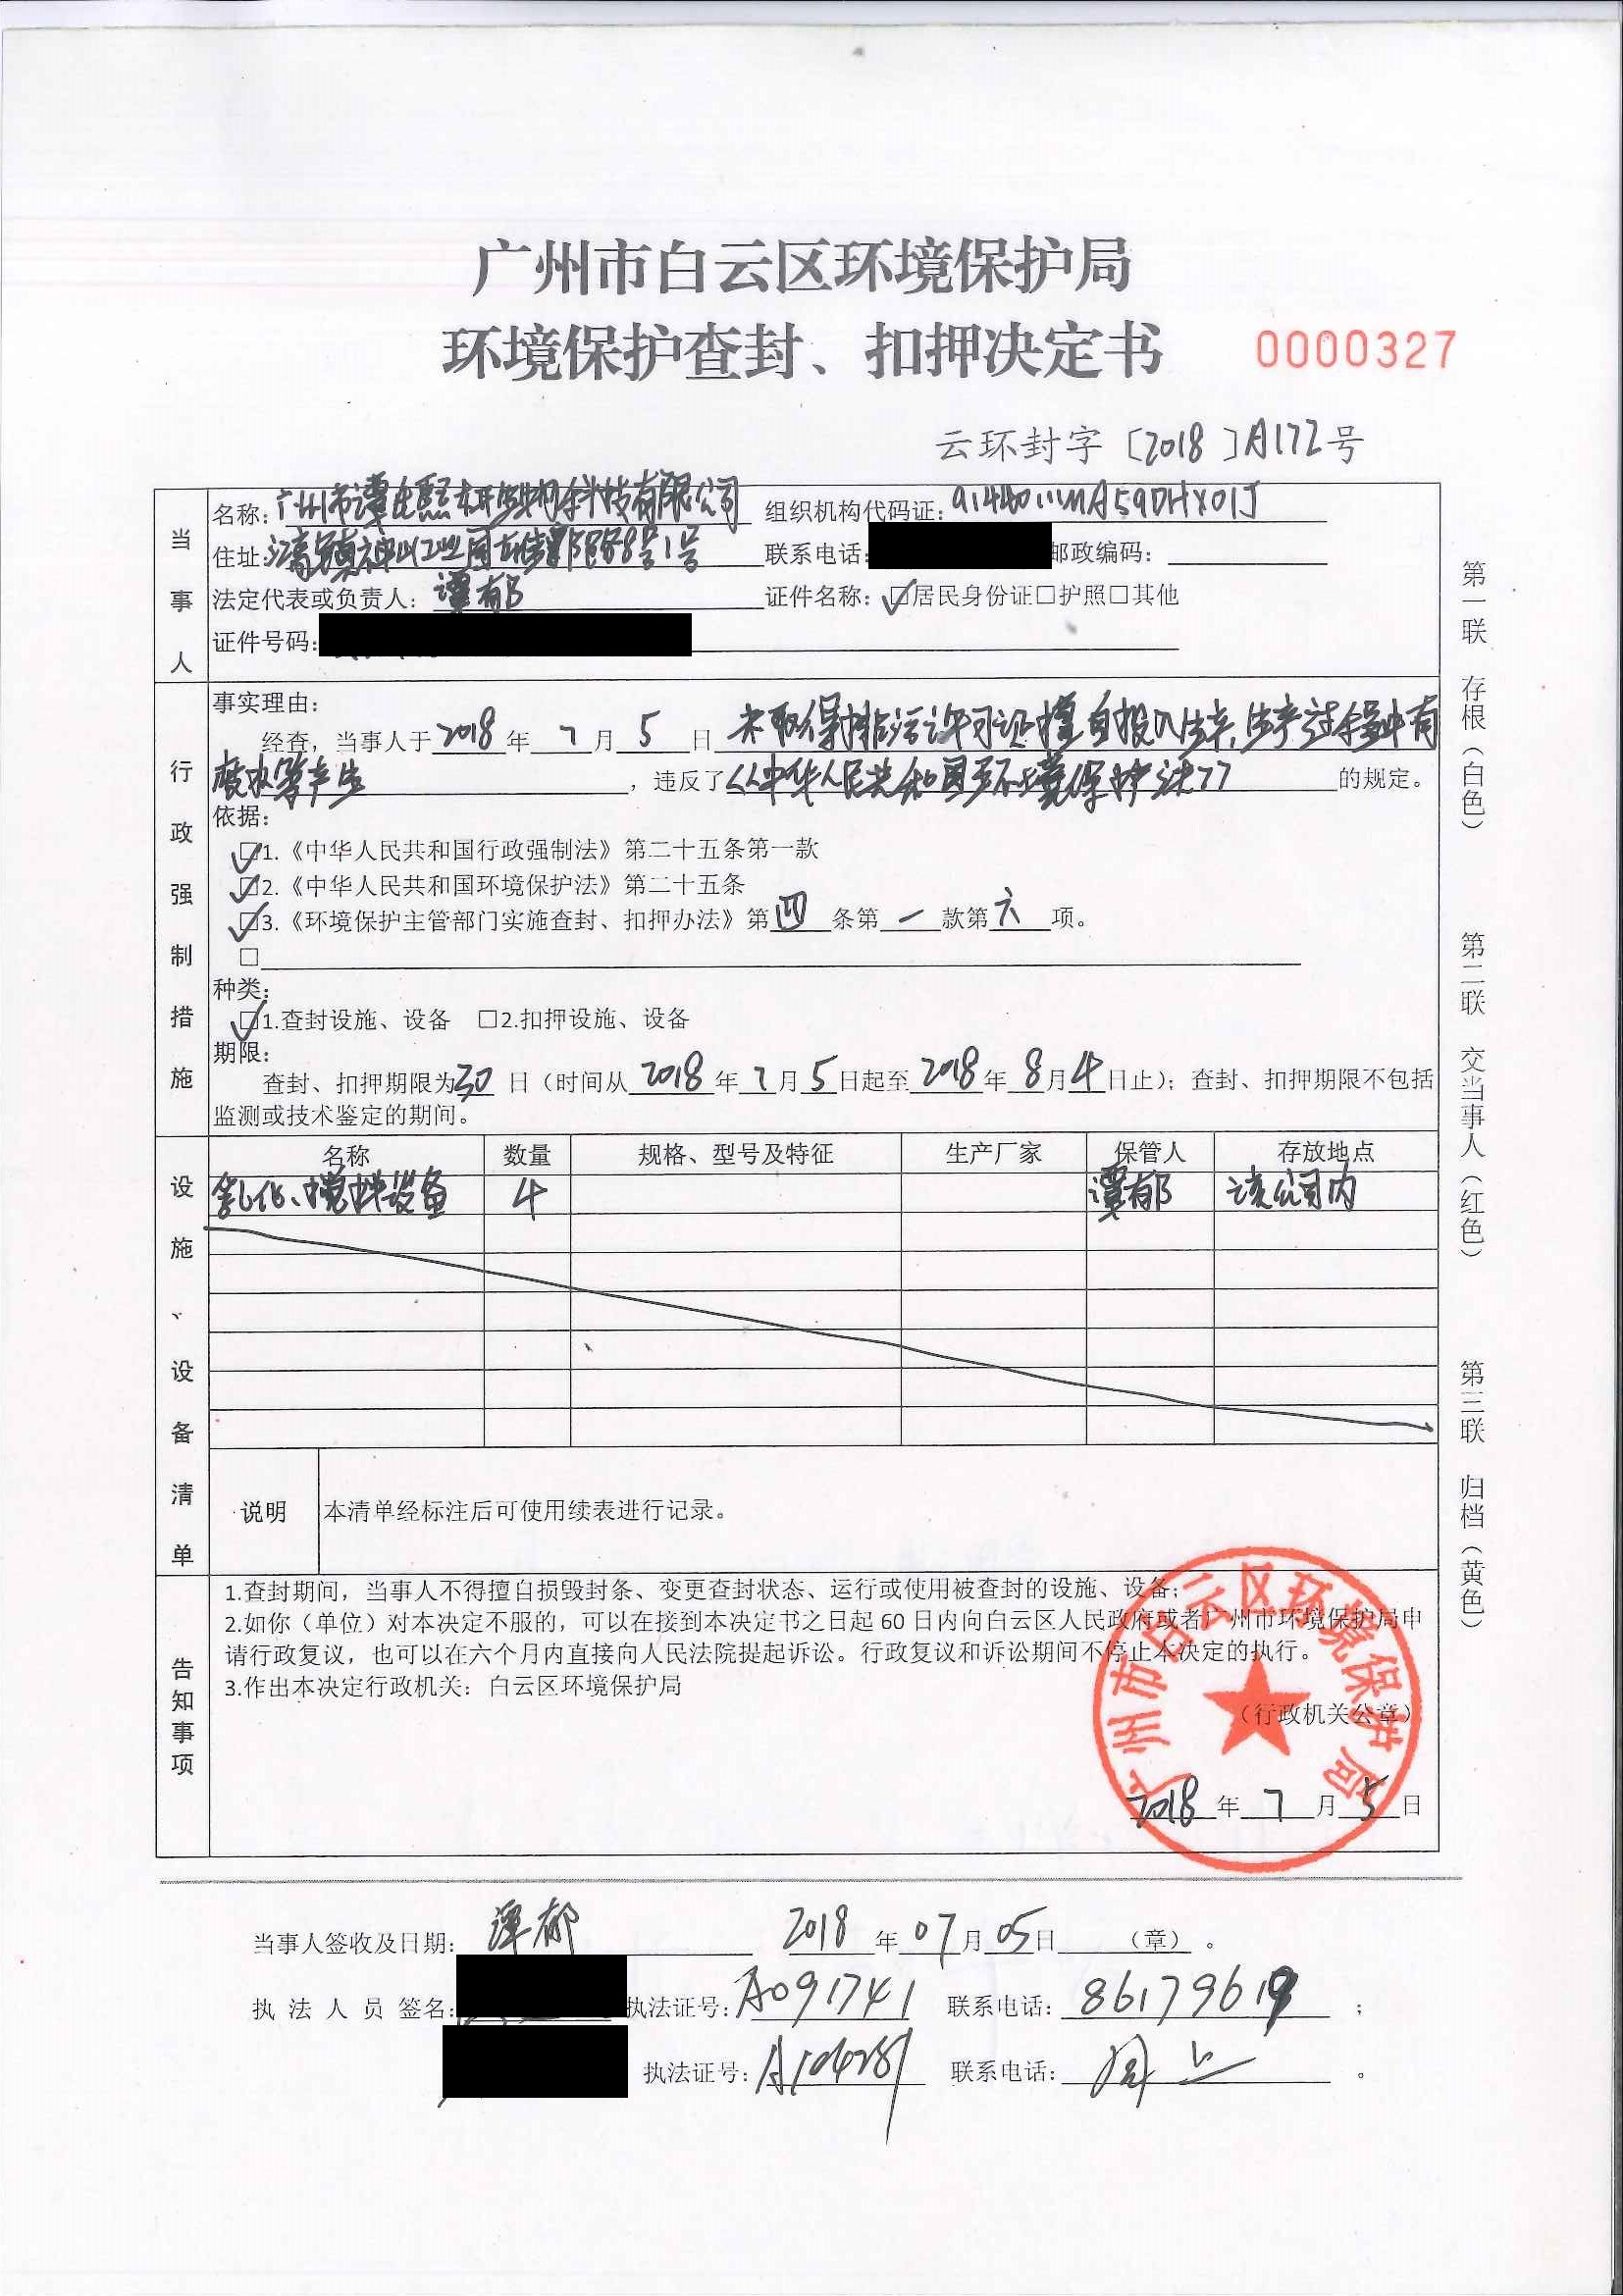 广州市白云区环境保护局
环境保护查封、扣押决定书 0000327
云环封字〔2018〕A172号
当事人
名称：广州市谭 科技有限公司 组织机构代码证：91440111MA59DHX01J
住址：江高镇神山工业园 8号1号 联系电话： 邮政编码：
法定代表或负责人：谭郁 证件名称：☑居民身份证□护照□其他
证件号码：
行政强制措施
事实理由：
经查，当事人于2018年7月5日未取得排污许可证擅自投入生产，生产过程中有
废水等产生，违反了《中华人民共和国环境保护法》的规定。
依据：
☑1.《中华人民共和国行政强制法》第二十五条第一款
☑2.《中华人民共和国环境保护法》第二十五条
☑3.《环境保护主管部门实施查封、扣押办法》第四条第一款第六项。
□
种类：
☑1.查封设施、设备 □2.扣押设施、设备
期限：
查封、扣押期限为30日（时间从2018年7月5日起至2018年8月4日止）；查封、扣押期限不包括
监测或技术鉴定的期间。
设施、设备清单
名称 数量 规格、型号及特征 生产厂家 保管人 存放地点
乳化、搅拌设备 4 谭郁 该公司内
说明 本清单经标注后可使用续表进行记录。
告知事项
1.查封期间，当事人不得擅自损毁封条、变更查封状态、运行或使用被查封的设施、设备；
2.如你（单位）对本决定不服的，可以在接到本决定书之日起 60 日内向白云区人民政府或者广州市环境保护局申
请行政复议，也可以在六个月内直接向人民法院提起诉讼。行政复议和诉讼期间不停止本决定的执行。
3.作出本决定行政机关：白云区环境保护局
（行政机关公章）
2018年7月5日
广州市白云区环境保护局
当事人签收及日期：谭郁 2018年07月05日（章）。
执法人员签名： 执法证号：A091741 联系电话：86179619；
执法证号：A104281 联系电话：同上。
第一联 存根（白色）
第二联 交当事人（红色）
第三联 归档（黄色）